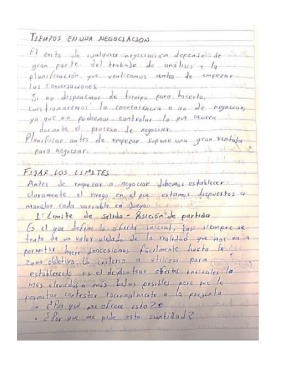 TIEMPOS EN UNA NEGOCIACION
El exito de cualquier negociacion depende de
gran parte del trabajo de analisis y la
planificación que realicemos antes de empezar
las conversaciones.
Si no disponemos de tiempo para hacerlo,
cuestionaremos la conveniencia o no de negociar,
ya que no podremos controlar lo que ocurra
durante el proceso de negociar.
Planificar antes de empezar supone una gran ventaja
para negociar.
FIJAR LOS LIMITES
Antes de empezar a negociar debemos establecer
claramente el rango en el que estamos dispuestos a
manejar cada variable en juego.
1º Limite de salida - Posición de partida
Es el que define la oferta inicial, casi siempre se
trata de un valor alejado de la realidad que nos va a
permitir hacer concesiones facilmente hasta la
zona objetivo. Un criterio a utilizar para
establecerlo es el de efectuar ofertas iniciales lo
más elevadas o más bajas posibles, pero que le
permitan contestar racionalmente a la pregunta
- ¿Por que me ofrece esto?
- ¿Por que me pide esta cantidad?